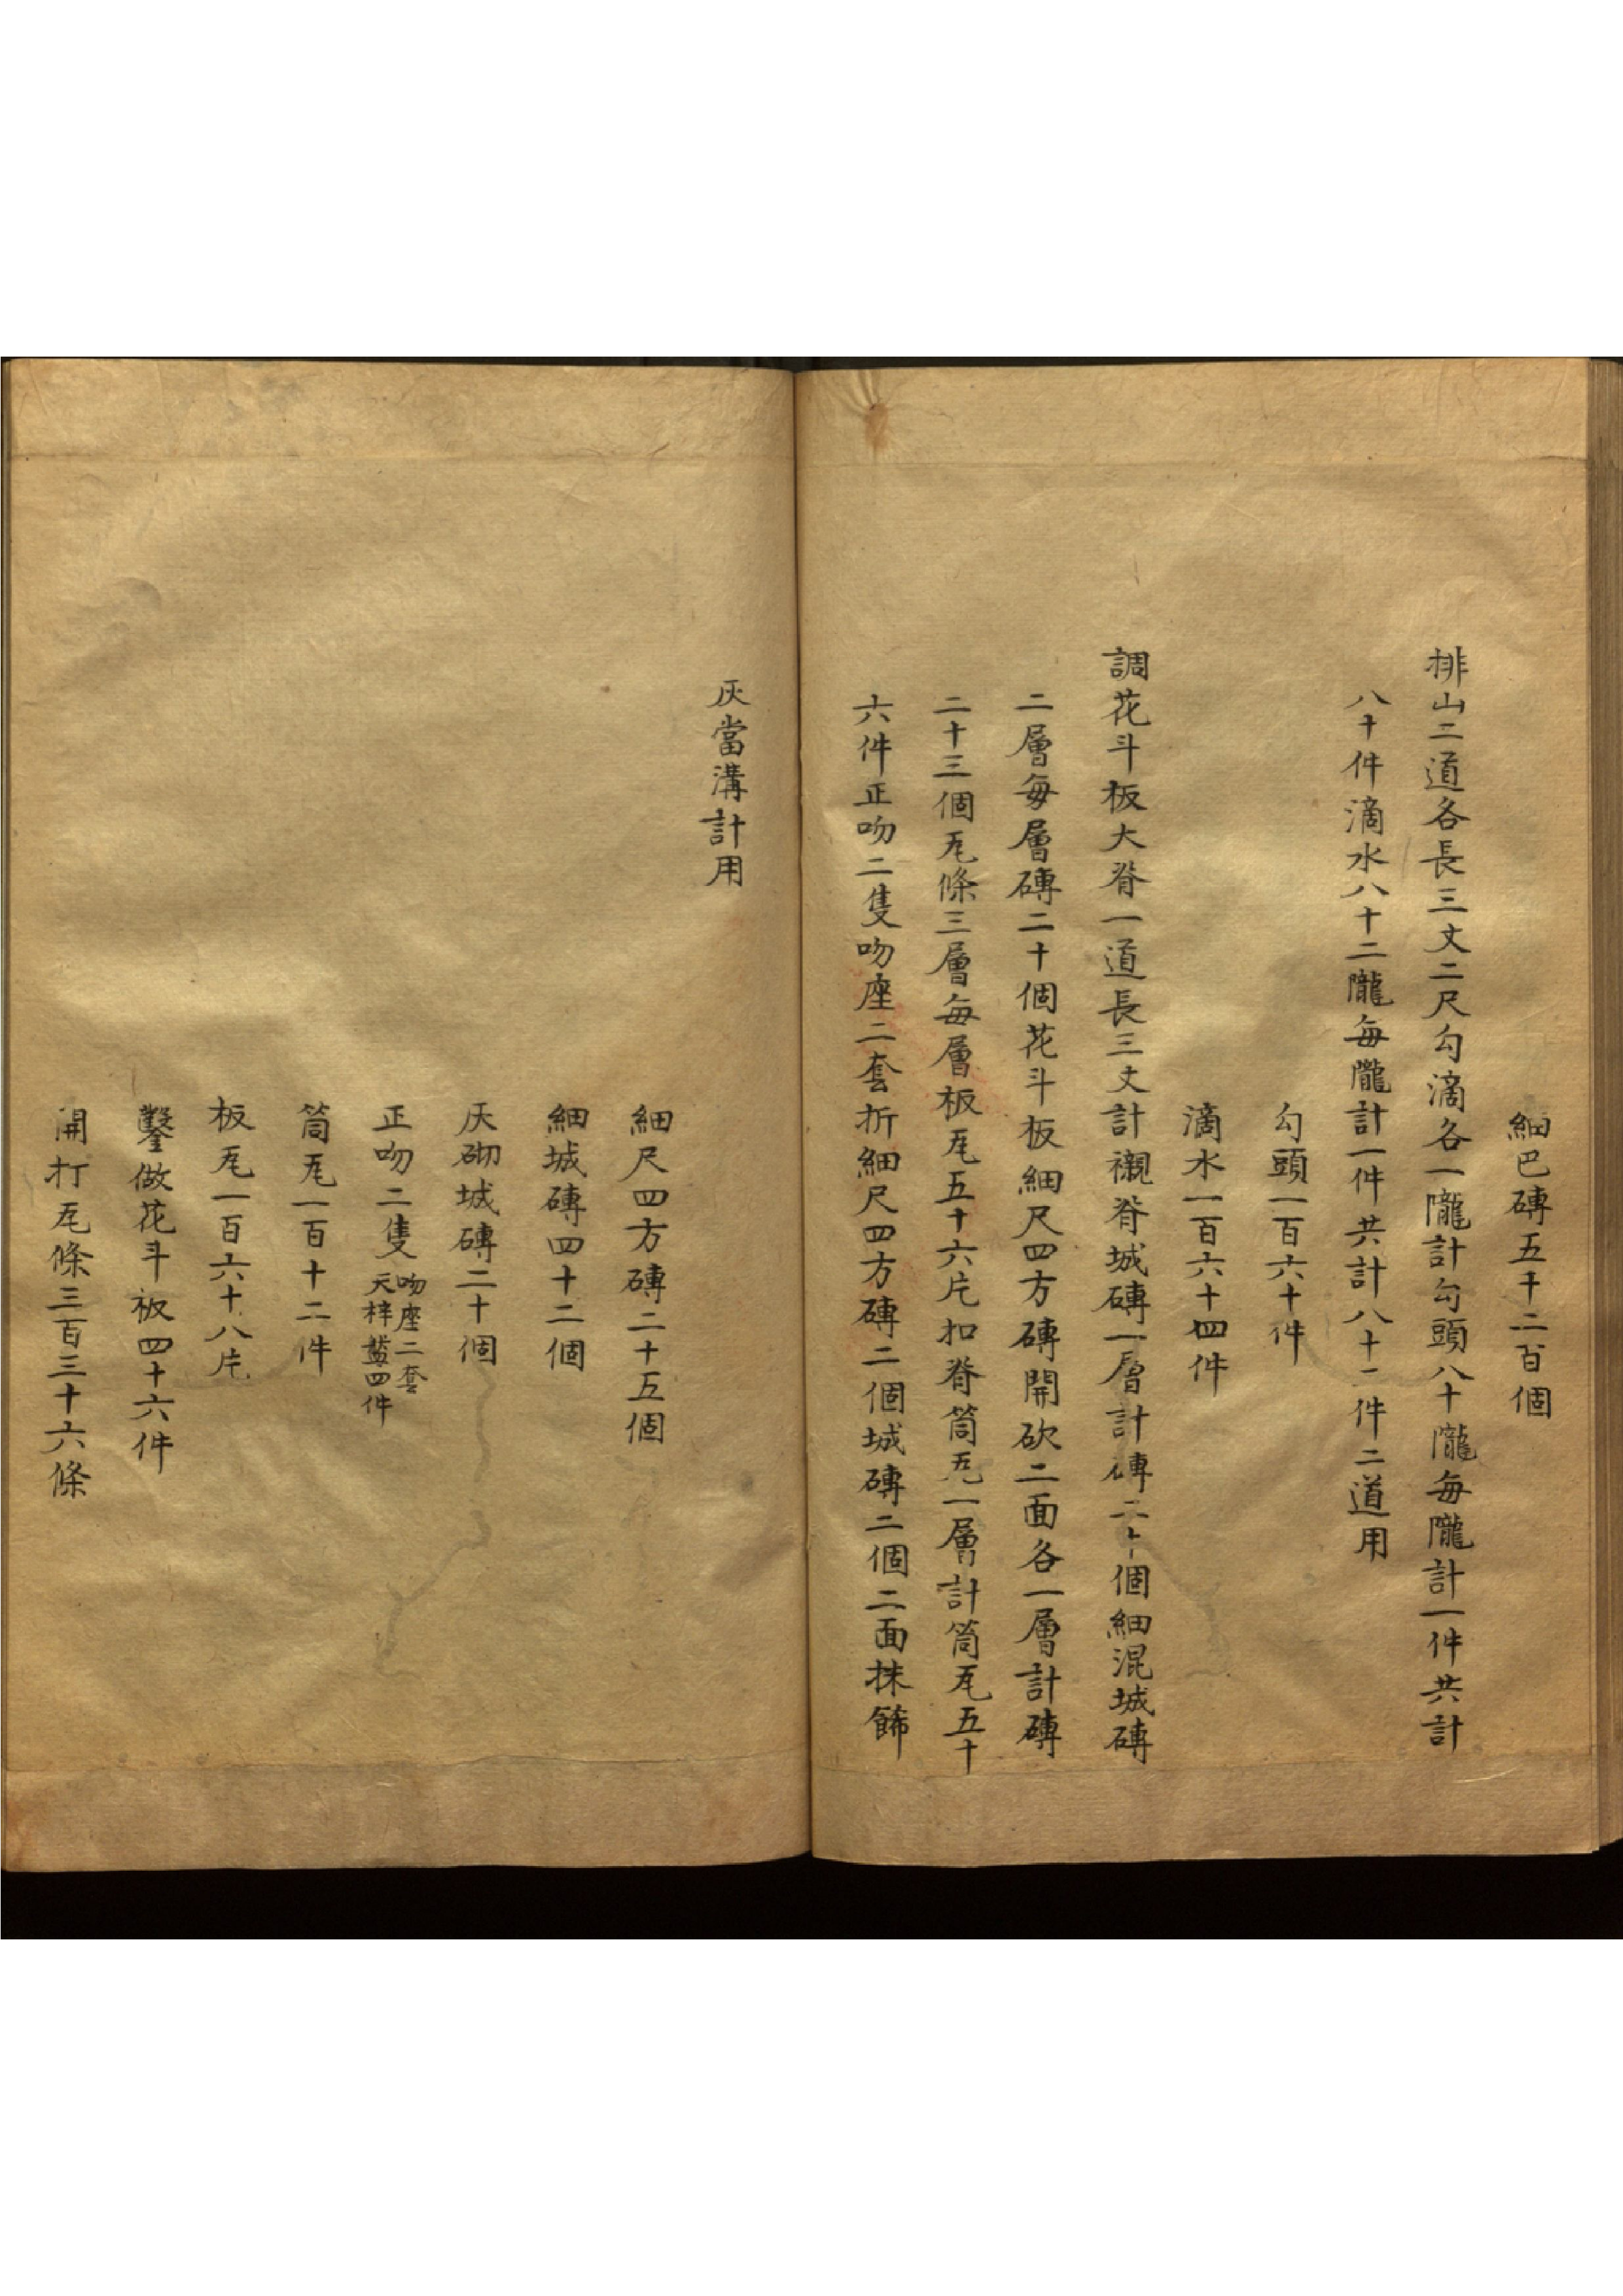 細巴磚五千二百個
排山二道各長三丈二尺勾滴各一隴計勾頭八十隴每隴計一件共計
八十件滴水八十二隴每隴計一件共計八十二件二道用
勾頭一百六十件
滴水一百六十四件
調花斗板大脊一道長三丈計襯脊城磚一層計磚二十個細混城磚
二層每層磚二十個花斗板細尺四方磚開砍二面各一層計磚
二十三個瓦條三層每層板瓦五十六片扣脊筒瓦一層計筒瓦五十
六件正吻二隻吻座二套折細尺四方磚二個城磚二個二面抹飾
灰當溝計用
細尺四方磚二十五個
細城磚四十二個
灰砌城磚二十個
正吻二隻吻座二套天梓盤四件
筒瓦一百十二件
板瓦一百六十八片
鑿做花斗板四十六件
開打瓦條三百三十六條